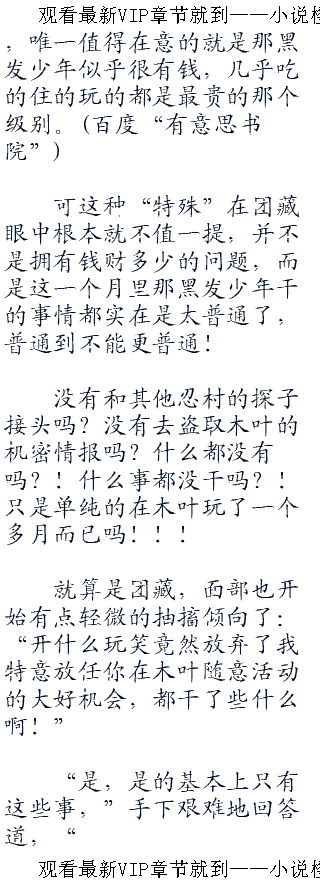 观看最新VIP章节就到——小说
，唯一值得在意的就是那黑
发少年似乎很有钱，几乎吃
的住的玩的都是最贵的那个
级别。(百度“有意思书
院”)
可这种“特殊”在团藏
眼中根本就不值一提，并不
是拥有钱财多少的问题，而
是这一个月里那黑发少年干
的事情都实在是太普通了，
普通到不能更普通！
没有和其他忍村的探子
接头吗？没有去盗取木叶的
机密情报吗？什么都没有
吗？！什么事都没干吗？！
只是单纯的在木叶玩了一个
多月而已吗！！！
就算是团藏，面部也开
始有点轻微的抽搐倾向了：
“开什么玩笑竟然放弃了我
特意放任你在木叶随意活动
的大好机会，都干了些什么
啊！”
“是，是的基本上只有
这些事，”手下艰难地回答
道，“
观看最新VIP章节就到——小说